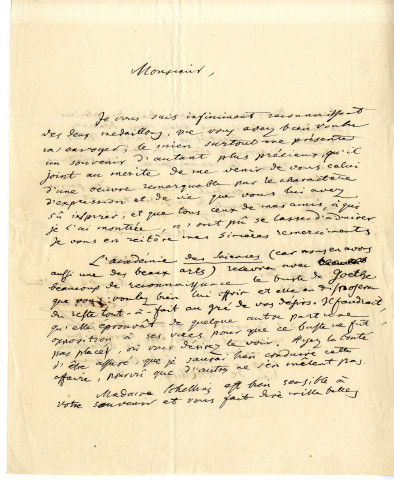 Monsieur,
Je vous suis infiniment reconnaissant
des deux medaillons, que vous avez bien voulu
m'envoyer, le mien surtout me présente
un souvenir d'autant plus précieux, qu'il
joint au mérite de me venir de vous, celui
d'une oeuvre remarquable par le charactère
d'expression et de vie que vous lui avez
sû inspirer, et que tous ceux de mes amis, à qui
je l'ai montrée, n'ont pû se lasser d'admirer
Je vous en réitère mes sincères remerciments.
L'académie des Sciences (car nous en avons
aussi une des beaux arts) recevra avec
beaucoup de reconnaissance le buste de Goethe
que vous voulez bien lui offrir et elle en disposera
du reste tout-à-fait au gré de vos désirs. Il faudrait
qu'elle éprouvât de quelque autre part une
opposition à ses vües pour que ce buste ne fût
pas placé, où vous désirez le voir. Ayez la bonté
d'être assuré que je saurai bien conduire cette
affaire, pourvû que d'autres ne s'en mêlent pas
Madame Schelling est bien sensible à
votre souvenir et vous fait dire mille belles